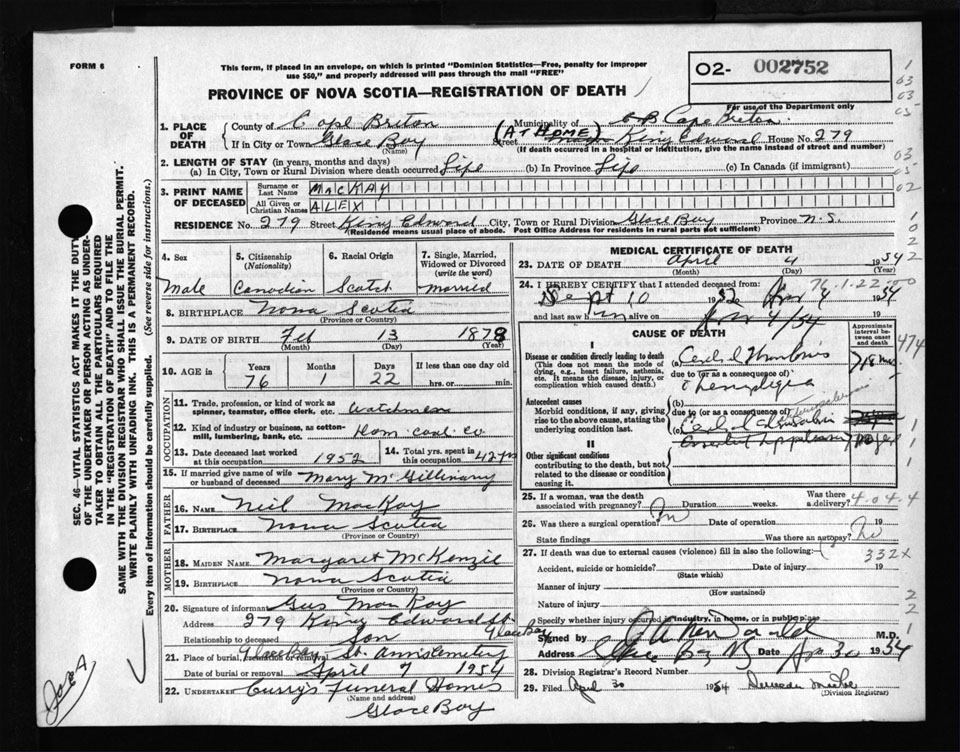 FORM 6
This form, if placed in an envelope, on which is printed "Dominion Statistics—Free, penalty for improper
use $50," and properly addressed will pass through the mail "FREE"
O2- 002752
PROVINCE OF NOVA SCOTIA—REGISTRATION OF DEATH
For use of the Department only
1. PLACE OF DEATH
County of Cape Breton
Municipality of C B Cape Breton
If in City or Town Glace Bay (Name)
(AT HOME)
Street King Edward House No. 279
(If death occurred in a hospital or institution, give the name instead of street and number)
2. LENGTH OF STAY (in years, months and days)
(a) In City, Town or Rural Division where death occurred Life (b) In Province Life (c) In Canada (if immigrant)
3. PRINT NAME OF DECEASED
Surname or Last Name MACKAY
All Given or Christian Names ALEX
RESIDENCE No. 279 Street King Edward City, Town or Rural Division Glace Bay Province N.S.
(Residence means usual place of abode. Post Office Address for residents in rural parts not sufficient)
4. Sex
Male
5. Citizenship (Nationality)
Canadian
6. Racial Origin
Scotch
7. Single, Married, Widowed or Divorced (write the word)
Married
8. BIRTHPLACE Nova Scotia
(Province or Country)
9. DATE OF BIRTH Feb 13 1878
(Month) (Day) (Year)
10. AGE in
Years Months Days If less than one day old
76 22 hrs. or min.
OCCUPATION
11. Trade, profession, or kind of work as spinner, teamster, office clerk, etc. Watchman
12. Kind of industry or business, as cotton-mill, lumbering, bank, etc. Dom. Coal Co
13. Date deceased last worked at this occupation 1952
14. Total yrs. spent in this occupation 42 yrs
15. If married give name of wife or husband of deceased Mary McGillivary
FATHER
16. NAME Neil MacKay
17. BIRTHPLACE Nova Scotia
(Province or Country)
MOTHER
18. MAIDEN NAME Margaret McKenzie
19. BIRTHPLACE Nova Scotia
(Province or Country)
20. Signature of informant Gus MacKay
Address 279 King Edward St. Glace Bay
Relationship to deceased Son
21. Place of burial, cremation or removal Glace Bay St. Anns Cemetery
Date of burial or removal April 7 1954
22. UNDERTAKER Curry's Funeral Homes
(Name and address)
Glace Bay
MEDICAL CERTIFICATE OF DEATH
23. DATE OF DEATH April 4 1954
(Month) (Day) (Year)
76-1-22-00
24. I HEREBY CERTIFY that I attended deceased from:
Sept 10 19 Apr 4 1954
and last saw him alive on Apr 4/54
CAUSE OF DEATH
Approximate interval between onset and death
I
Disease or condition directly leading to death
(This does not mean the mode of dying, e.g., heart failure, asthenia, etc. It means the disease, injury, or complication which caused death.)
(a) Cerebral Thrombosis
due to (or as a consequence of)
Hemiplegia
18 mos
474
Antecedent causes
Morbid conditions, if any, giving rise to the above cause, stating the underlying condition last.
(b)
due to (or as a consequence of)
(c)
II
Other significant conditions
contributing to the death, but not related to the disease or condition causing it.
25. If a woman, was the death associated with pregnancy? Duration weeks. Was there a delivery?
4.04.4
26. Was there a surgical operation? No Date of operation 19
State findings Was there an autopsy? No
27. If death was due to external causes (violence) fill in also the following:
332X
Accident, suicide or homicide? Date of injury 19
(State which)
Manner of injury
(How sustained)
Nature of injury
Specify whether injury occurred in industry, in home, or in public place
Signed by M.D.
Address Glace Bay NS Date Apr 30 1954
28. Division Registrar's Record Number
29. Filed April 30 1954
(Division Registrar)
SEC. 46—VITAL STATISTICS ACT MAKES IT THE DUTY
OF THE UNDERTAKER OR PERSON ACTING AS UNDER-
TAKER TO OBTAIN ALL THE PARTICULARS REQUIRED
IN THE "REGISTRATION OF DEATH" AND TO FILE THE
SAME WITH THE DIVISION REGISTRAR WHO SHALL ISSUE THE BURIAL PERMIT.
WRITE PLAINLY WITH UNFADING INK. THIS IS A PERMANENT RECORD.
Every item of information should be carefully supplied. (See reverse side for instructions.)